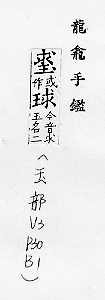 龍龕手鑑
或作球今音求玉名二
(玉部 V3 P30 B1)